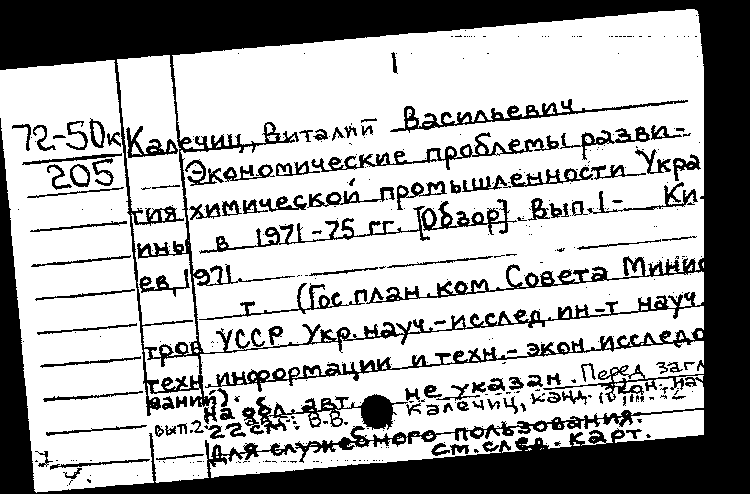 1
72-50к Калечиц, Виталий Васильевич.
205 Экономические проблемы разви-
тия химической промышленности Укра
ины в 1971-75 гг. [Обзор]. Вып. 1- Ки-
ев, 1971.
т. (Гос. план. ком. Совета Минис
тров УССР. Укр. науч.-исслед. ин-т науч.
техн. информации и техн.-экон. исследо
ваний).
На обл. авт. не указан. Перед загл
вып. 2 22 см. В.В. Калечиц, канд. экон. нау
Для служебного пользования.
см. след. карт.